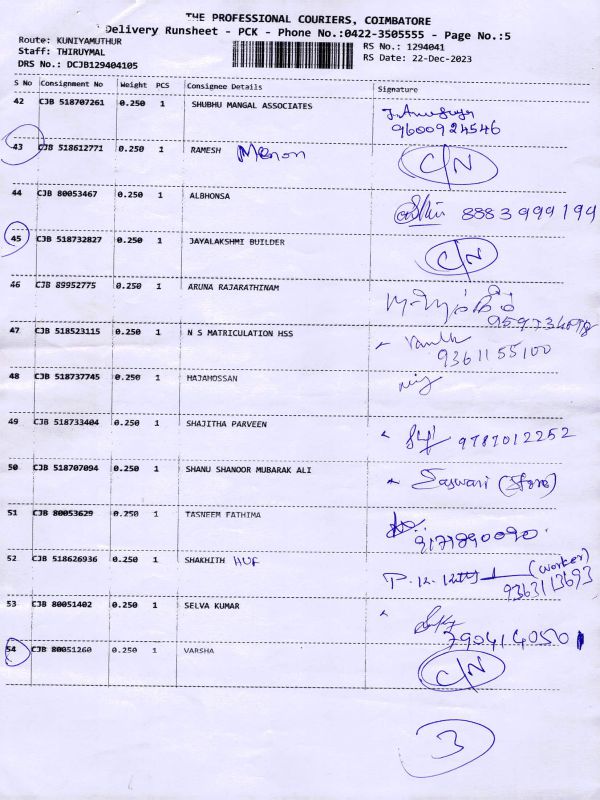 THE PROFESSIONAL COURIERS, COIMBATORE
Delivery Runsheet - PCK - Phone No.:0422-3505555 - Page No.:5
Route: KUNIYAMUTHUR
RS No.: 1294041
Staff: THIRUYMAL
RS Date: 22-Dec-2023
DRS No.: DCJB129404105
S No Consignment No Weight PCS Consignee Details Signature
42 CJB 518707261 0.250 1 SHUBHU MANGAL ASSOCIATES
9600924546
43 CJB 518612771 0.250 1 RAMESH Menon C/N
44 CJB 80053467 0.250 1 ALBHONSA 8883999194
45 CJB 518732827 0.250 1 JAYALAKSHMI BUILDER C/N
46 CJB 89952775 0.250 1 ARUNA RAJARATHINAM
47 CJB 518523115 0.250 1 N S MATRICULATION HSS
9361155100
48 CJB 518737745 0.250 1 HAJAHOSSAN
49 CJB 518733404 0.250 1 SHAJITHA PARVEEN 9787012252
50 CJB 518707094 0.250 1 SHANU SHANOOR MUBARAK ALI
51 CJB 80053629 0.250 1 TASNEEM FATHIMA
52 CJB 518626936 0.250 1 SHAKHITH HUF (worker)
9363113693
53 CJB 80051402 0.250 1 SELVA KUMAR
54 CJB 80051260 0.250 1 VARSHA C/N
3